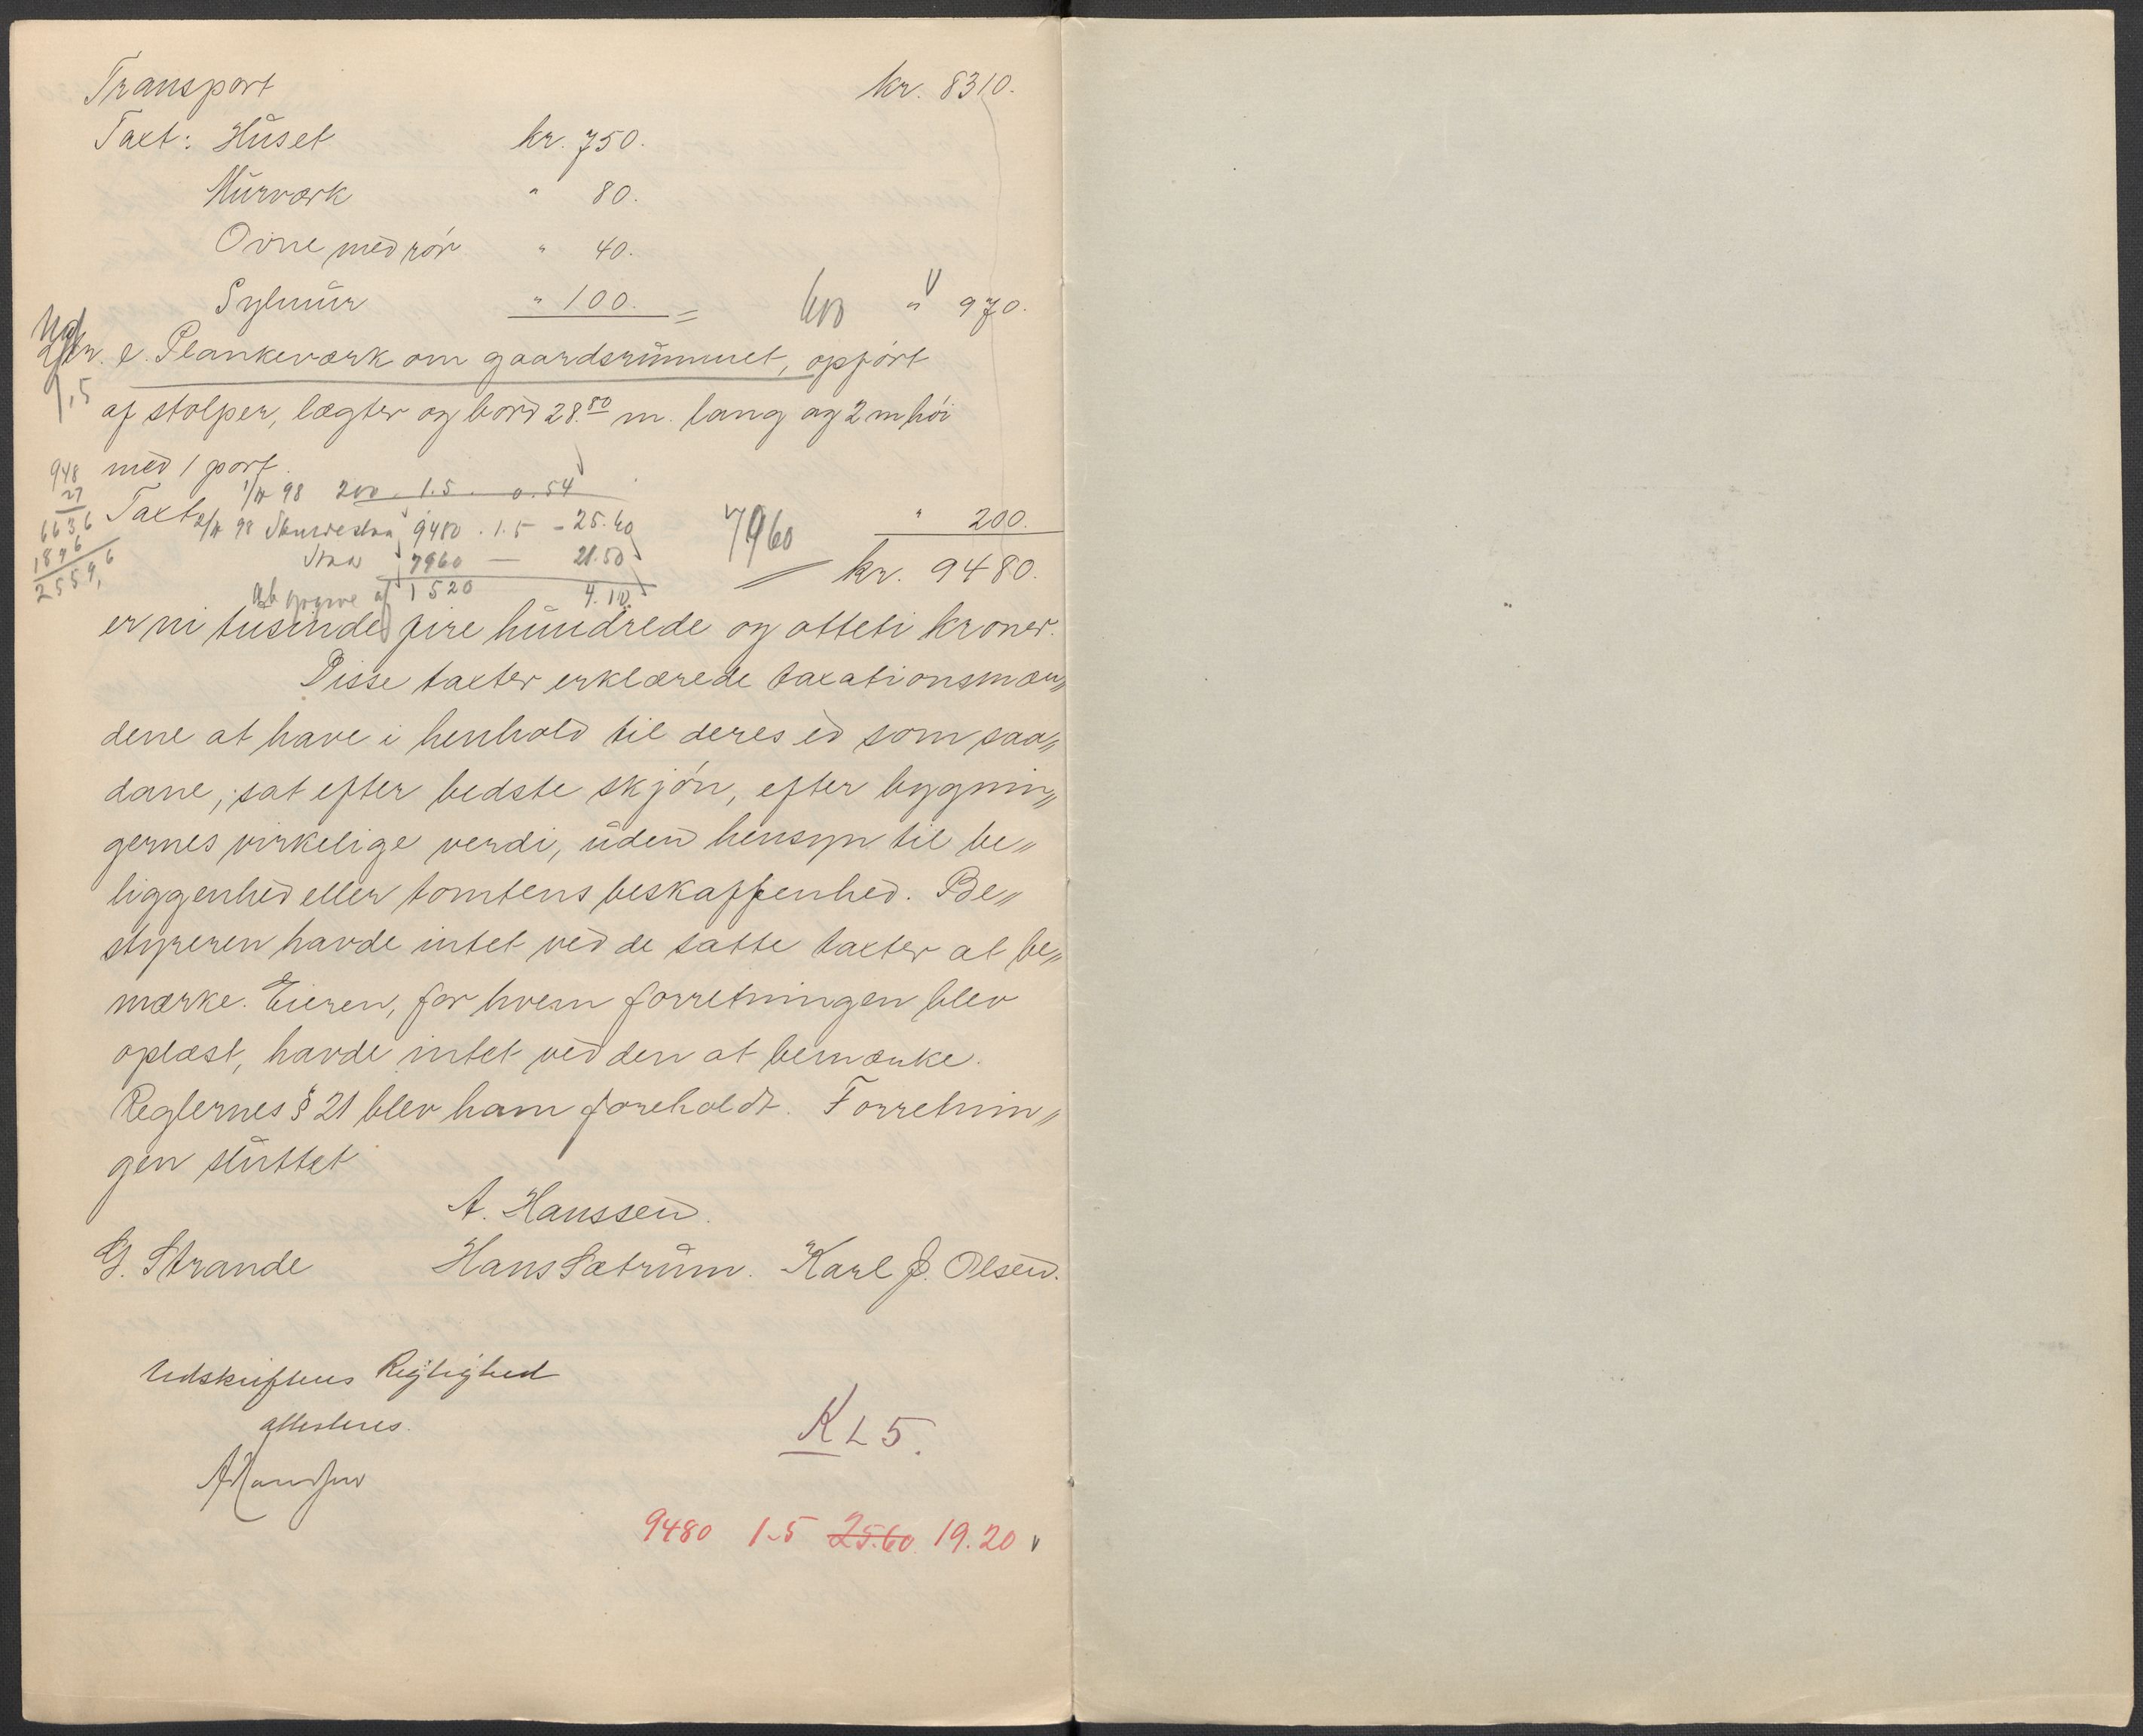 Transport kr. 8310.
Taxt: Huset kr. 750.
Murværk " 80.
Ovne med rör " 40.
Sylmur " 100. = 600 " 970.
e. Plankeværk om gaardsrummet, opfört
1,5
af stolper, lægter og bord 28.80 m. lang og 2 m höi
med 1 port.
948
27
6636
1896
2559,6
1/4 98 200 . 1.5 . 0.54
Taxt 98 9480 . 1.5 - 25.60 7960 " 200.
7960 — 21.50 kr. 9480.
af 1520 4.10
er ni tusinde fire hundrede og otteti kroner.
Disse taxter erklærede taxationsmæn„
dene at have i henhold til deres ed som saa„
dane, sat efter bedste skjön, efter bygnin„
gernes virkelige verdi, uden hensyn til be„
liggenhed eller tomtens beskaffenhed. Be„
styreren havde intet ved de satte taxter at be„
mærke. Eieren, for hvem forretningen blev
oplæst, havde intet ved den at bemærke.
Reglernes § 21 blev ham foreholdt. Forretnin„
gen sluttet
A. Hanssen.
G. Strande Hans Sætrum. Karl J. Olsen.
Udskriftens Rigtighed
attesteres.
AHanssen
K L 5.
9480 1-5 25.60 19.20 v